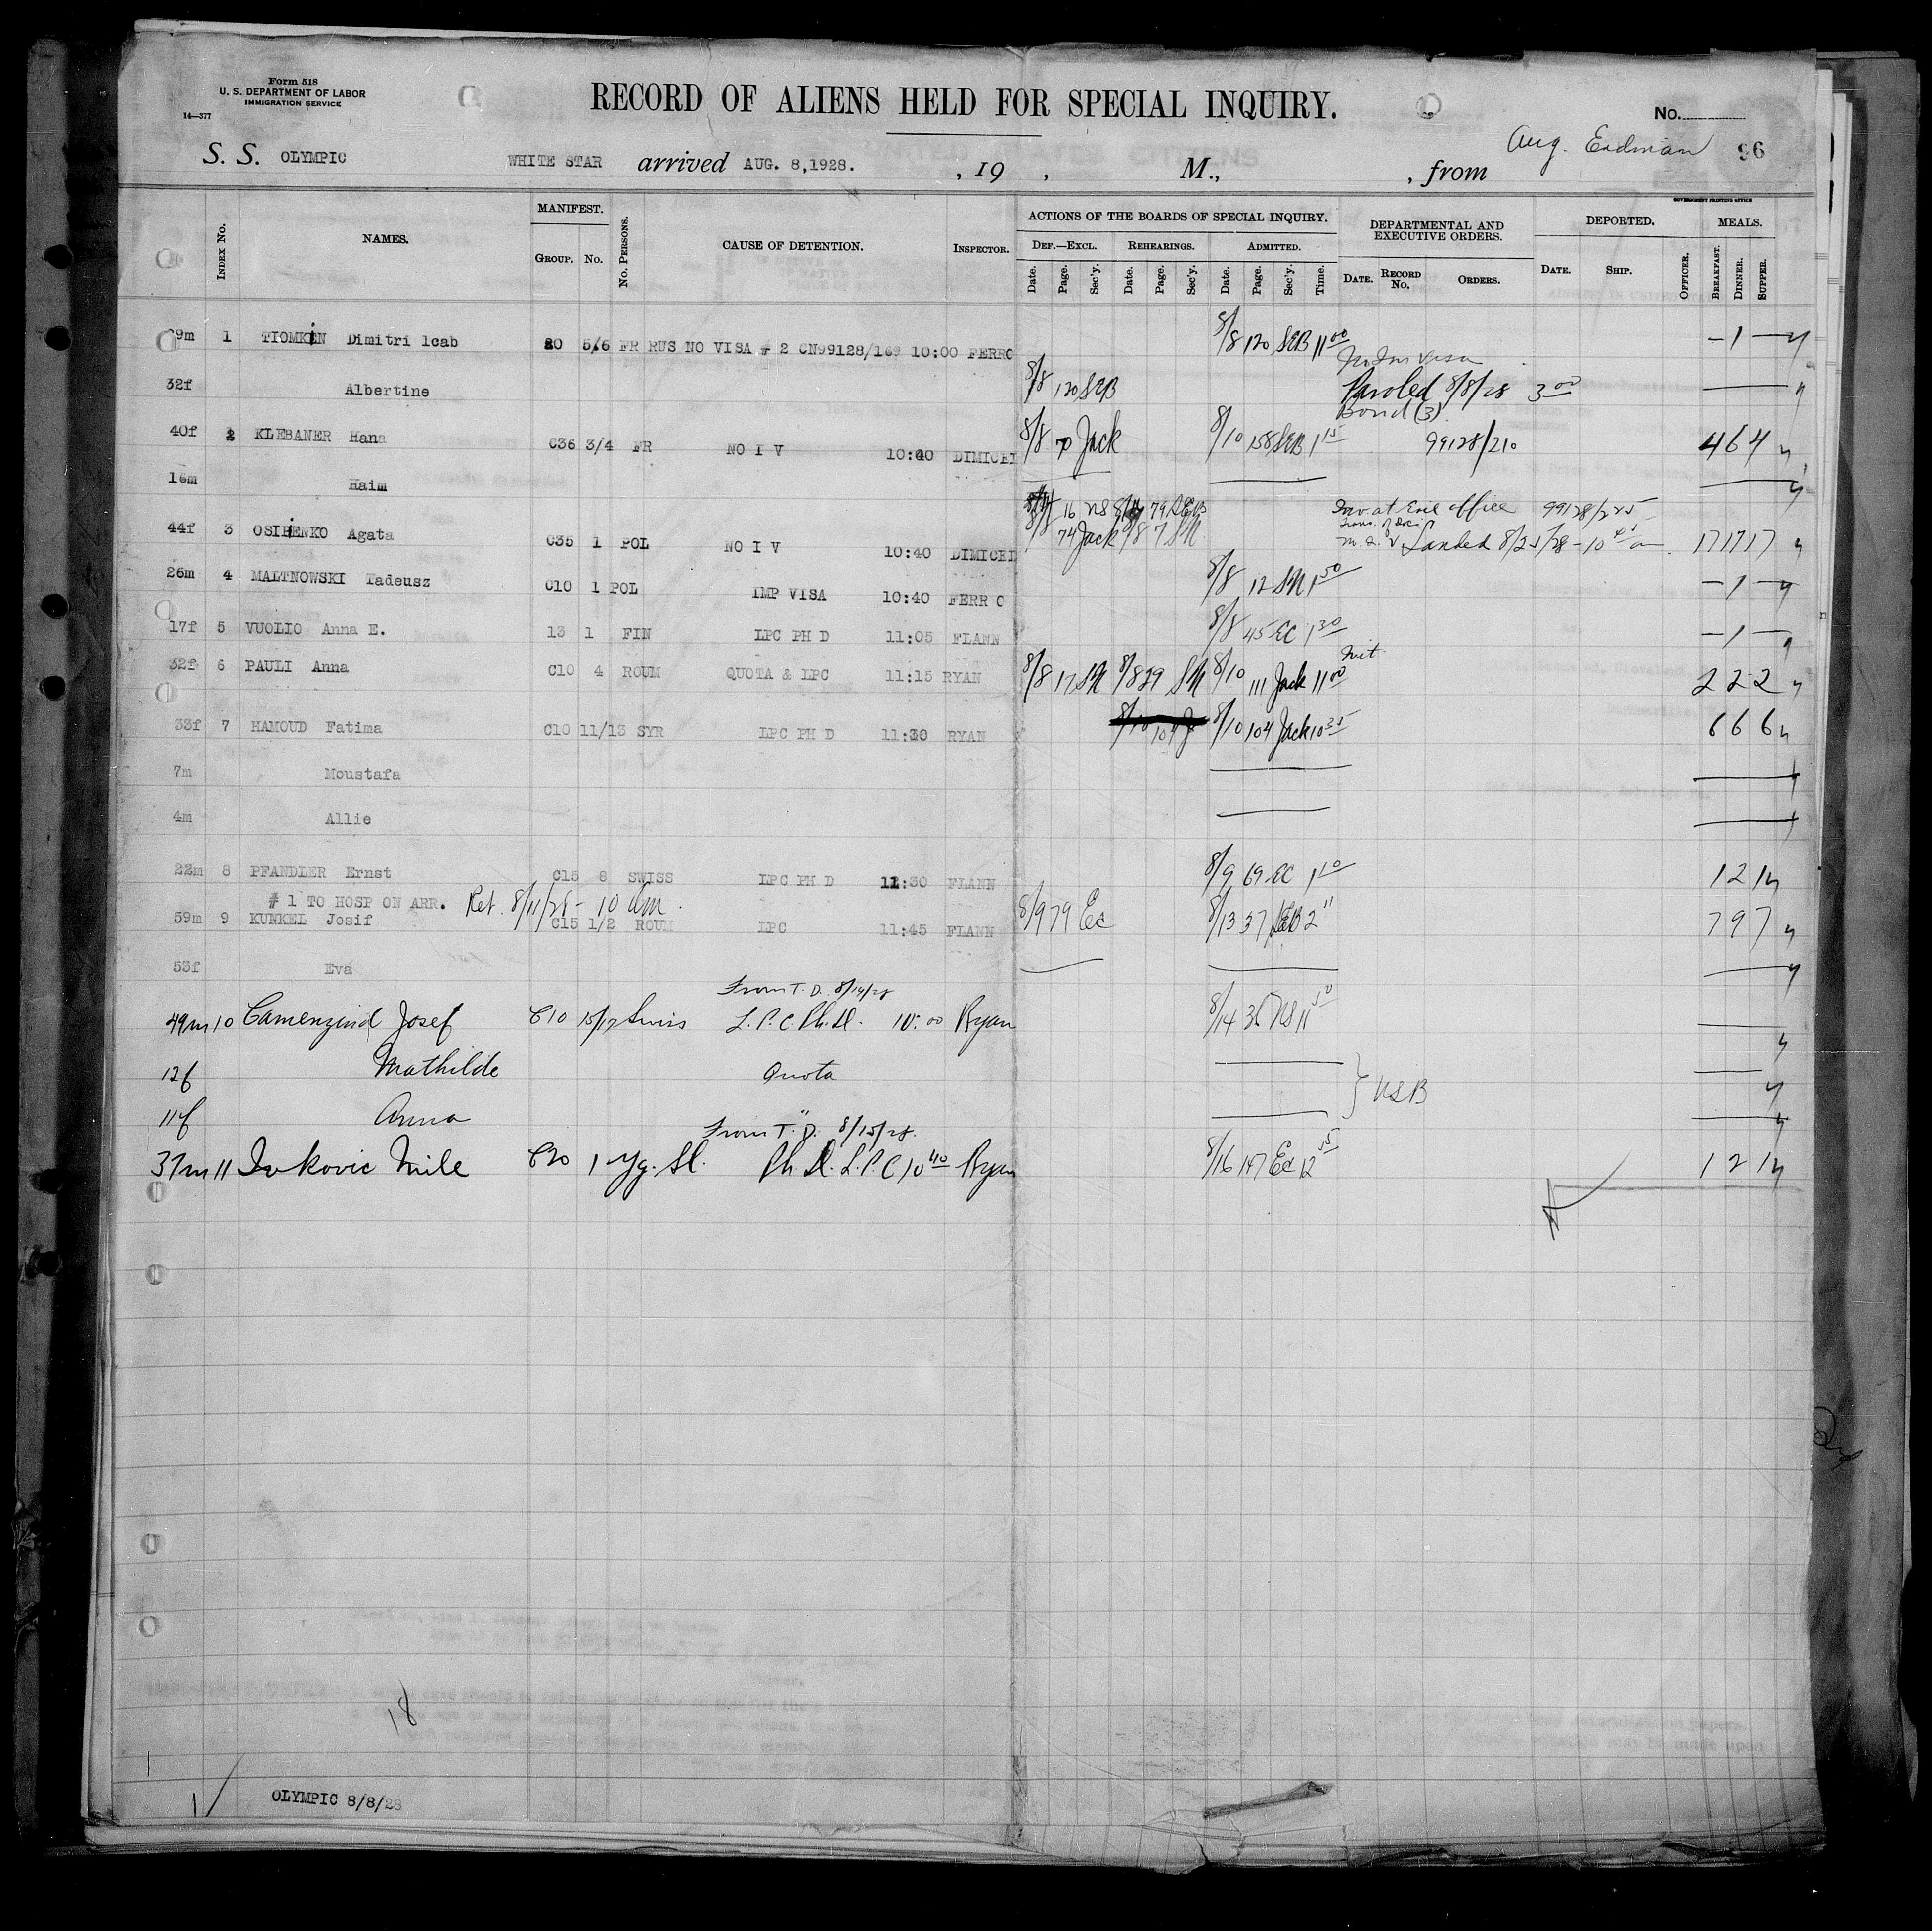 Form 518
U. S. DEPARTMENT OF LABOR
IMMIGRATION SERVICE
14—377
RECORD OF ALIENS HELD FOR SPECIAL INQUIRY.
No.
Aug. Erdman 96
S. S. OLYMPIC WHITE STAR arrived AUG. 8,1928. , 19 , M., , from
GOVERNMENT PRINTING OFFICE
INDEX No. NAMES. MANIFEST. GROUP. No. No. PERSONS. CAUSE OF DETENTION. INSPECTOR. ACTIONS OF THE BOARDS OF SPECIAL INQUIRY. DEF.—EXCL. REHEARINGS. ADMITTED. DEPARTMENTAL AND EXECUTIVE ORDERS. DEPORTED. MEALS.
Date. Page. Sec'y. Date. Page. Sec'y. Date. Page. Sec'y. Time. DATE. RECORD No. ORDERS. DATE. SHIP. OFFICER. BREAKFAST. DINNER. SUPPER.
9m 1 TIOMKIN Dimitri lcab 20 5/6 FR RUS NO VISA 2 CN99128/169 10:00 FERRO 8/8 120 SEB 11 00 – 1 –
32f Albertine 8/8 120 SEB Paroled 8/8/28 3 00
Bond (3)
40f 2 KLEBANER Hana C36 3/4 FR NO I V 10:40 DIMICHI 8/8 70 Jack 8/10 158 SEB 1 15 99128/210 4 6 4
16m Haim
16 79 SEB Inv. at Exec office 99128/225
44f 3 OSIPENKO Agata C35 1 POL NO I V 10:40 DIMICHI 8/8 74 Jack 8/8 7 SM Landed 8/25/28 – 10 17 17 17
26m 4 MALTNOWSKI Tadeusz C10 1 POL IMP VISA 10:40 FERR O 8/8 12 SM 1 50 – 1 –
17f 5 VUOLIO Anna E. 13 1 FIN LPC PH D 11:05 FLANN 8/8 45 EC 1 30 – 1 –
32f 6 PAULI Anna C10 4 ROUM QUOTA & LPC 11:15 RYAN 8/8 17 SM 8/8 29 SM 8/10 111 Jack 11 00 2 2 2
33f 7 HAMOUD Fatima C10 11/13 SYR LPC PH D 11:30 RYAN 8/10 104 J 8/10 104 Jack 10 35 6 6 6
7m Moustafa
4m Allie
22m 8 PFANDLER Ernst C15 8 SWISS LPC PH D 11:30 FLANN 8/9 69 EC 1 10 1 2 1
# 1 TO HOSP ON ARR. Ret. 8/11/28 – 10 am.
59m 9 KUNKEL Josif C15 1/2 ROUM LPC 11:45 FLANN 8/9 79 Ec 8/13 37 SEB 2 11 7 9 7
53f Eva
From T. D. 8/14/28
49m 10 Camenzind Josef C10 15/17 Swiss L.P.C. Ph.D. 10:00 Ryan 8/14 36 NS 11 50
12f Mathilde Quota
11f Anna "
From T. D. 8/15/28
37m 11 Ivkovic Mile C20 1 Yg. Sl. Ph D. L.P.C 10 40 Ryan 8/16 147 Ec 12 55 1 2 1
18
OLYMPIC 8/8/28